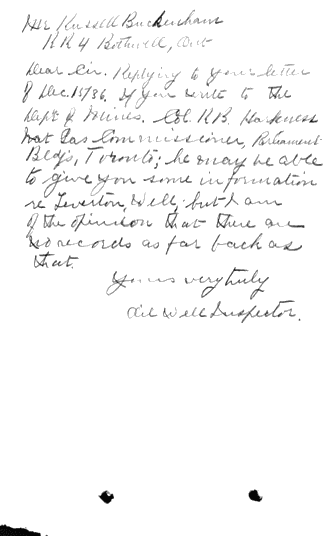 Mr Russell Buckenham
RR 4 Bothwell, Ont
Dear Sir. Replying to yours letter
of Dec. 15/36. If you write to the
Dept of Mines. Col. R.B. Harkness
Nat Gas Commissioner, Parliament
Bldg's, Toronto; he may be able
to give you some information
re Leverton, Well; but I am
of the opinion that there are
no records as far back as
that.
Yours very truly
Oil Well Inspector.